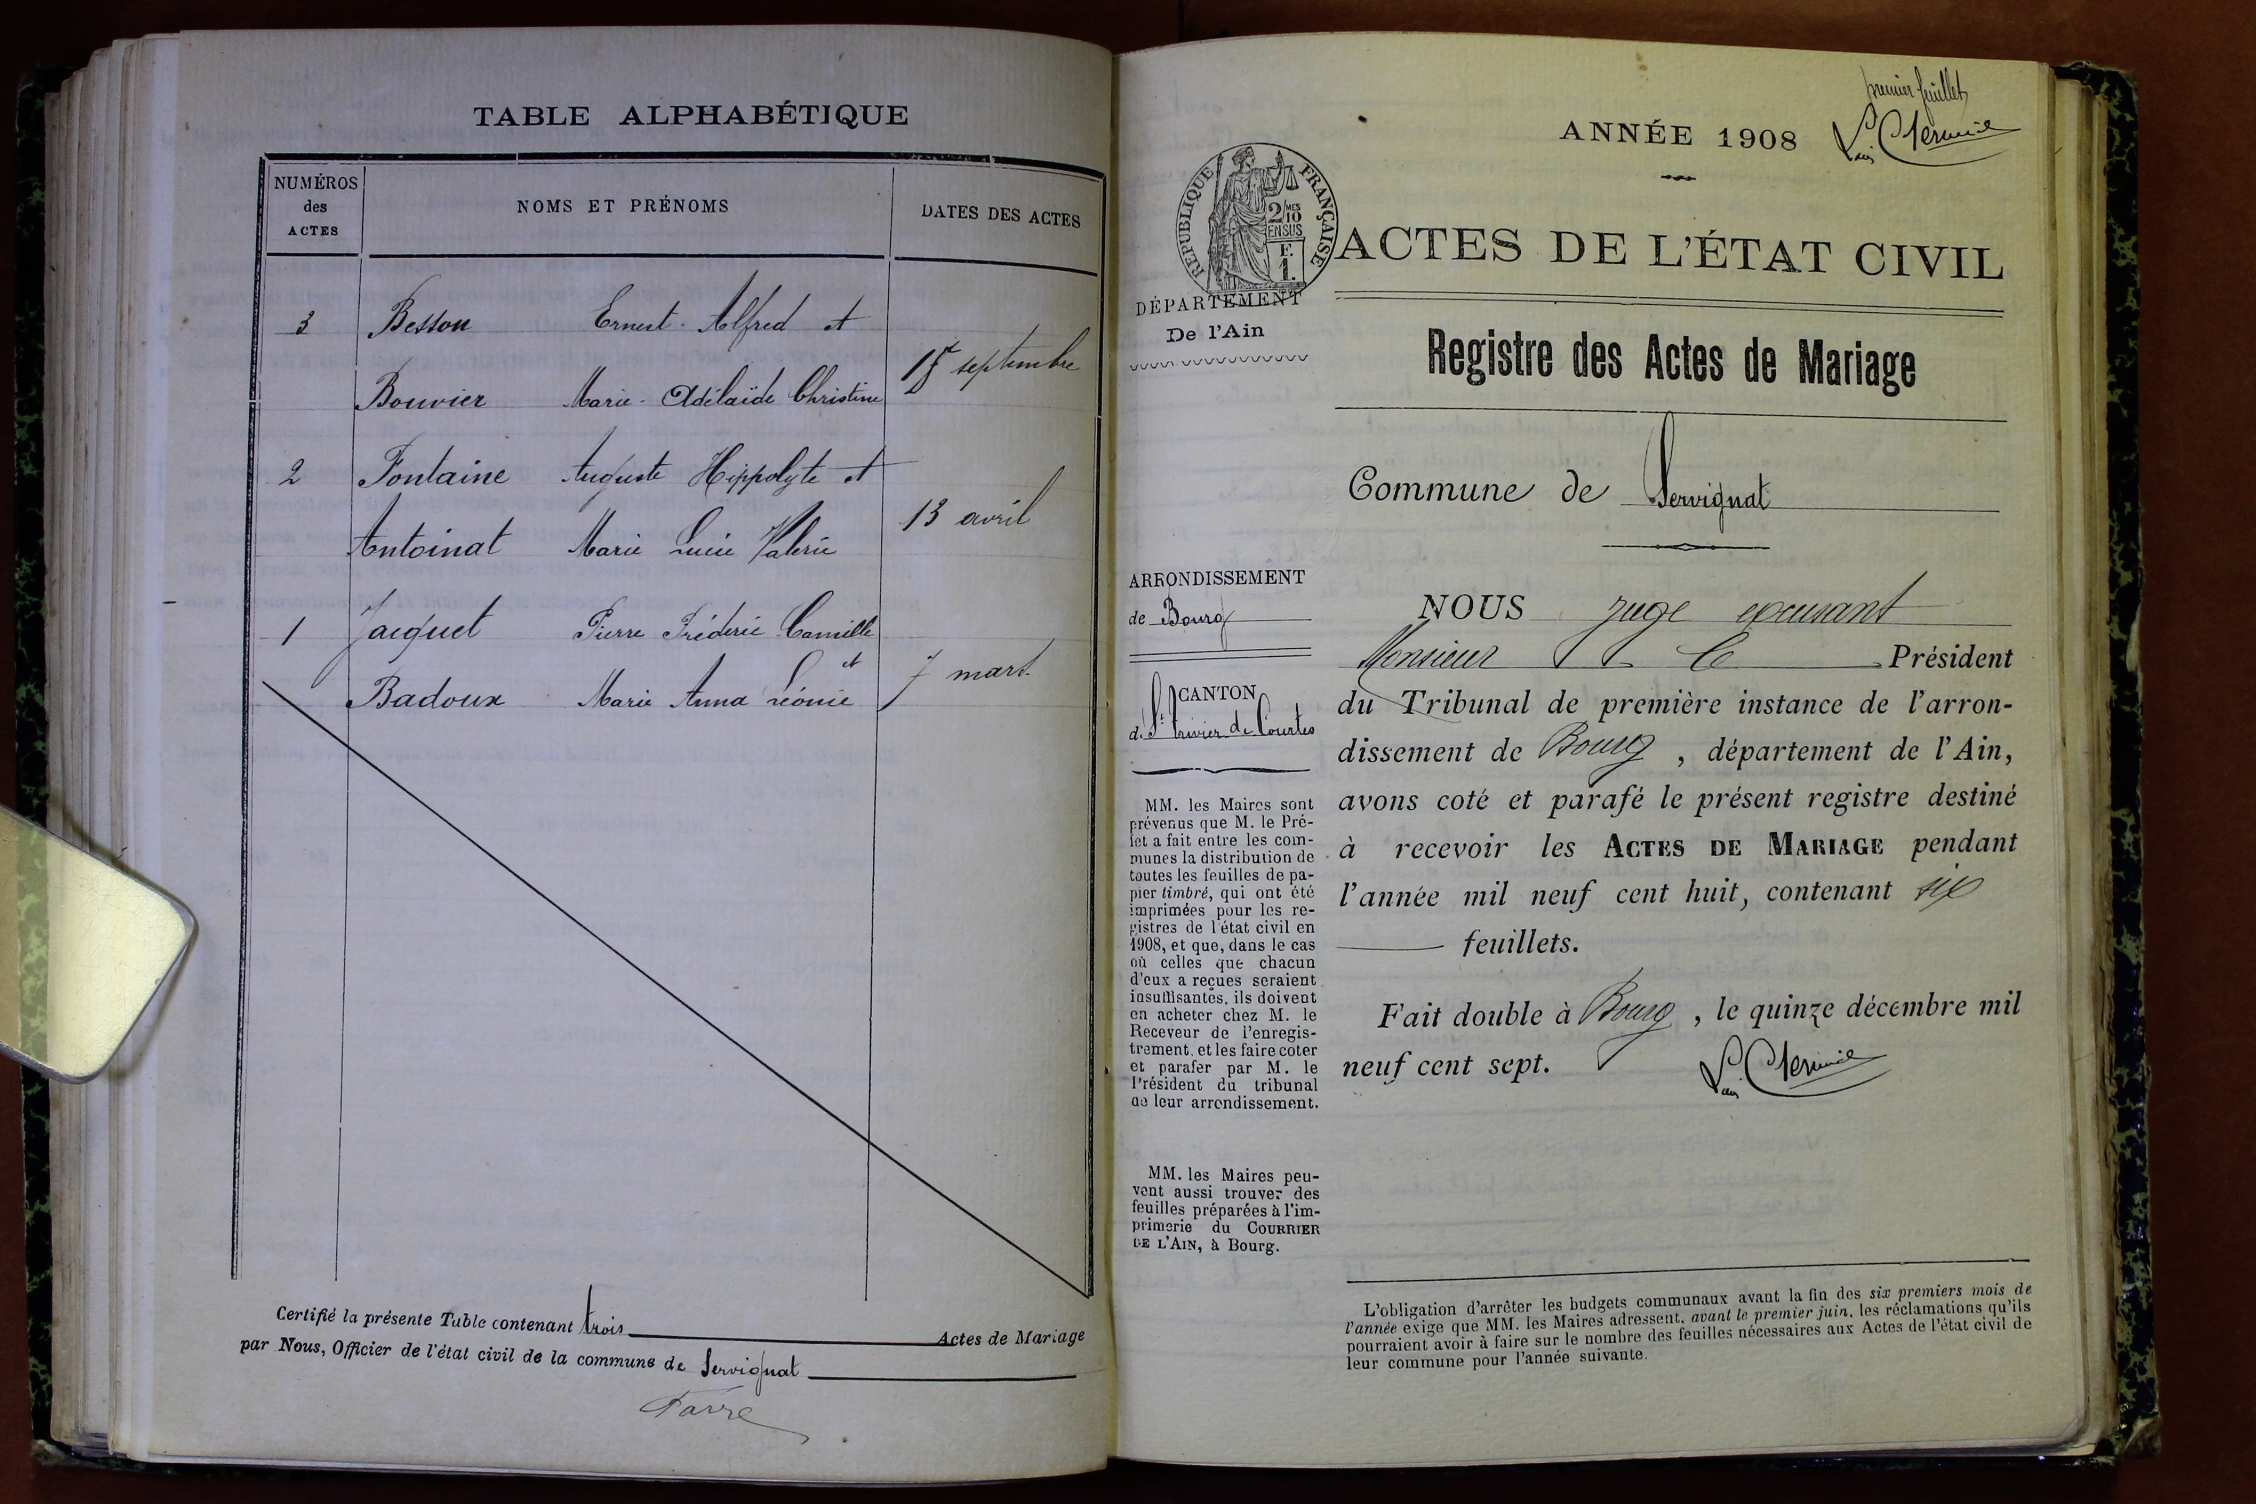 TABLE ALPHABÉTIQUE
NUMÉROS
des
ACTES
NOMS ET PRÉNOMS
DATES DES ACTES
3 Besson Ernest Alfred et
septembre
Bouvier Marie Adélaïde Christine
2 Fontaine Auguste Hippolyte et
13 avril
Antoinat Marie Lucie Valerie
1 Jacquet Pierre Fréderic Camille
et
7 mars
Badoux Marie Anna Léonie
Certifié la présente Table contenant trois Actes de Mariage
par Nous, Officier de l'état civil de la commune de Servignat
Favre
premier feuillet
ANNÉE 1908
RÉPUBLIQUE FRANÇAISE
2/10 MES
EN SUS
F.
1.
DÉPARTEMENT
De l'Ain
ARRONDISSEMENT
de Bourg
CANTON
de St Trivier de Courtes
MM. les Maires sont
prévenus que M. le Pré-
fet a fait entre les com-
munes la distribution de
toutes les feuilles de pa-
pier timbré, qui ont été
imprimées pour les re-
gistres de l'état civil en
1908, et que, dans le cas
où celles que chacun
d'eux a reçues seraient
insuffisantes, ils doivent
en acheter chez M. le
Receveur de l'enregis-
trement, et les faire coter
et parafer par M. le
Président du tribunal
de leur arrondissement.
MM. les Maires peu-
vent aussi trouver des
feuilles préparées à l'im-
primerie du COURRIER
DE L'AIN, à Bourg.
ACTES DE L'ÉTAT CIVIL
Registre des Actes de Mariage
Commune de Servignat
NOUS juge excusant
Monsieur le Président
du Tribunal de première instance de l'arron-
dissement de Bourg, département de l'Ain,
avons coté et parafé le présent registre destiné
à recevoir les ACTES DE MARIAGE pendant
l'année mil neuf cent huit, contenant six
feuillets.
Fait double à Bourg, le quinze décembre mil
neuf cent sept.
L'obligation d'arrêter les budgets communaux avant la fin des six premiers mois de
l'année exige que MM. les Maires adressent, avant le premier juin, les réclamations qu'ils
pourraient avoir à faire sur le nombre des feuilles nécessaires aux Actes de l'état civil de
leur commune pour l'année suivante.